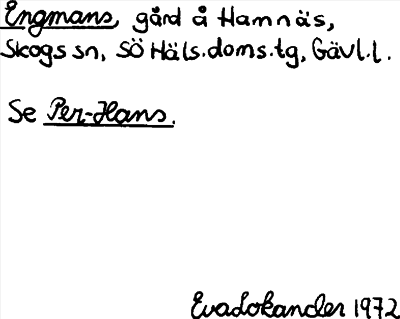 Engmans, gård å Hamnäs,
Skogs sn, SÖ Häls.doms.tg, Gävl.l.
Se Per-Hans.
Eva Lokander 1972